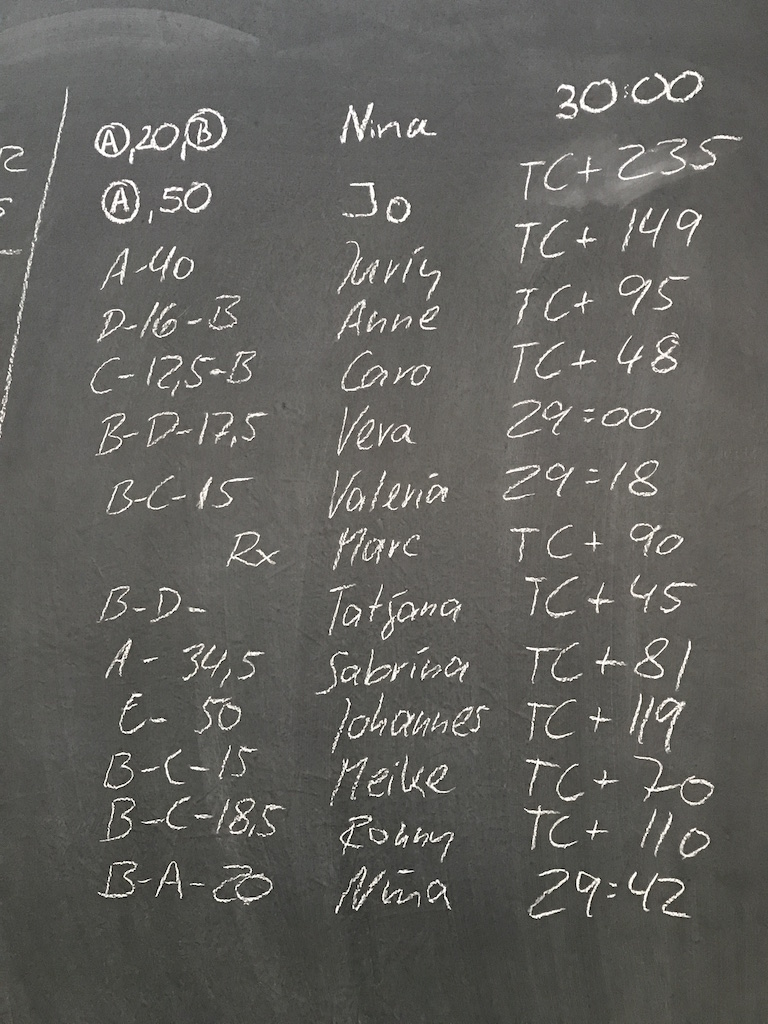 Ⓐ,20,Ⓑ Nina 30:00
Ⓐ,50 Jo TC+ 235
A-40 TC+ 149
D-16-B Anne TC+ 95
C-12,5-B Caro TC+ 48
B-D-17,5 Vera 29:00
B-C-15 Valeria 29:18
Rx Marc TC+ 90
B-D- Tatjana TC+45
A- 34,5 Sabrina TC+81
E- 50 Johannes TC+119
B-C-15 Meike TC+70
B-C-18,5 Ronny TC+ 110
B-A-20 Nina 29:42